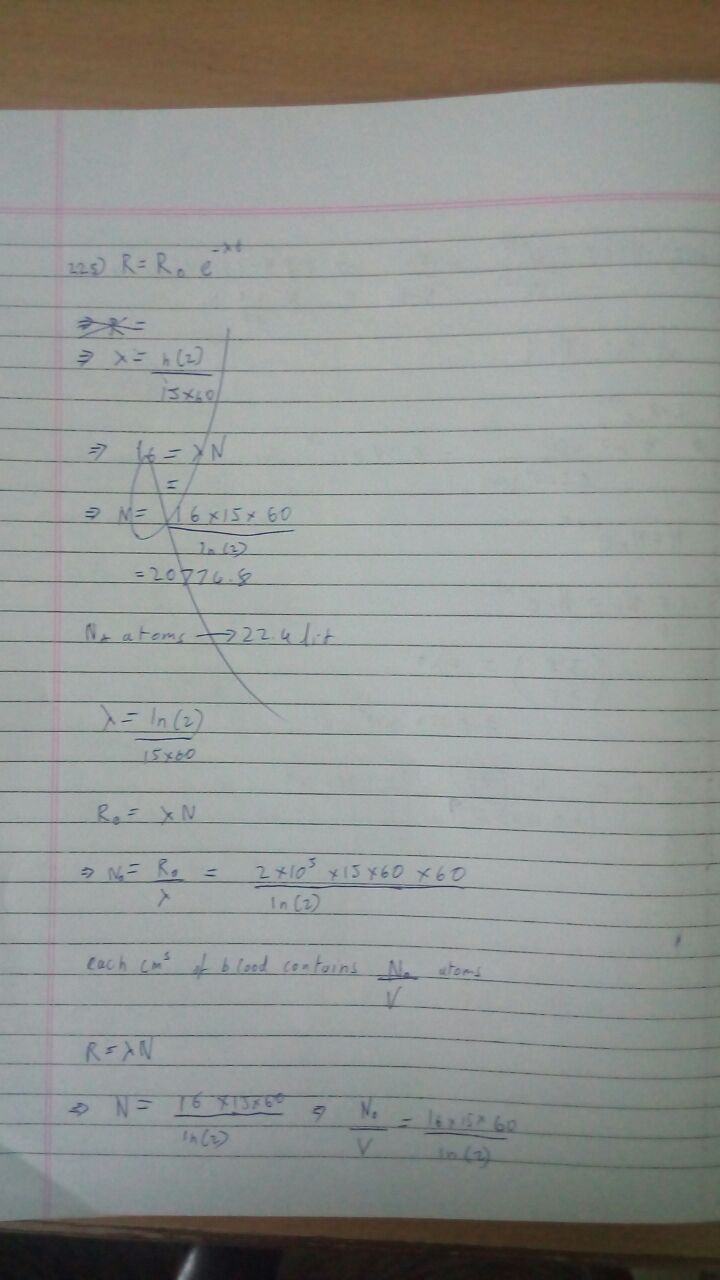 225) R = R₀ e^-λt
⇒ R =
⇒ λ = ln(2) / 15×60
⇒ 16 = λN
=
⇒ N = 16×15×60 / ln(2)
= 20776.8
Nₐ atoms → 22.4 lit
λ = ln(2) / 15×60
R₀ = λN
⇒ N₀ = R₀ / λ = 2×10³ ×15×60 ×60 / ln(2)
each cm³ of blood contains N₀ / V atoms
R = λN
⇒ N = 16×15×60 / ln(2) ⇒ N₀ / V = 16×15×60 / ln(2)